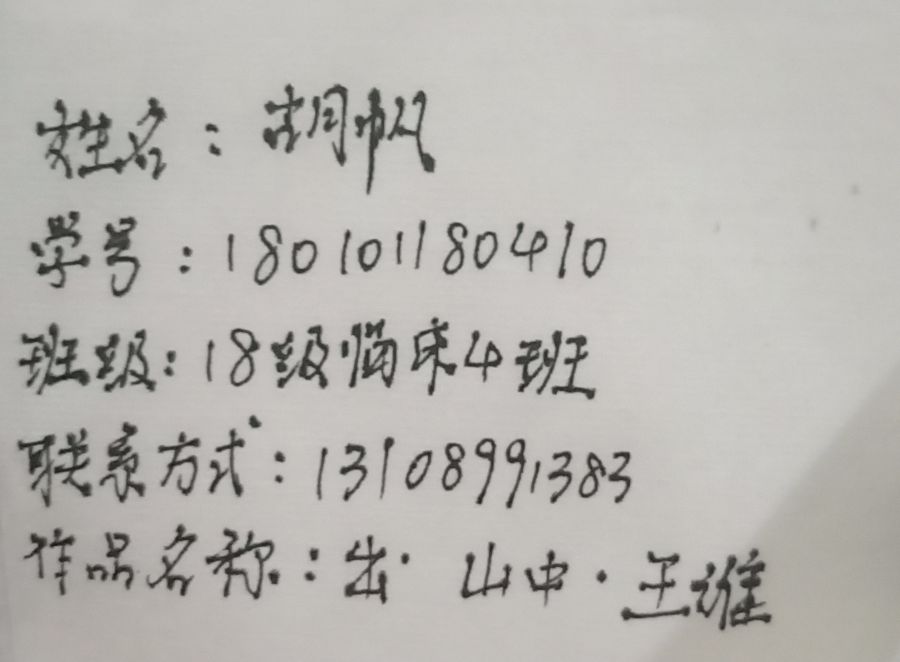 姓名：胡帆
学号：180101180410
班级：18级临床4班
联系方式：13108991383
作品名称：出·山中·王维